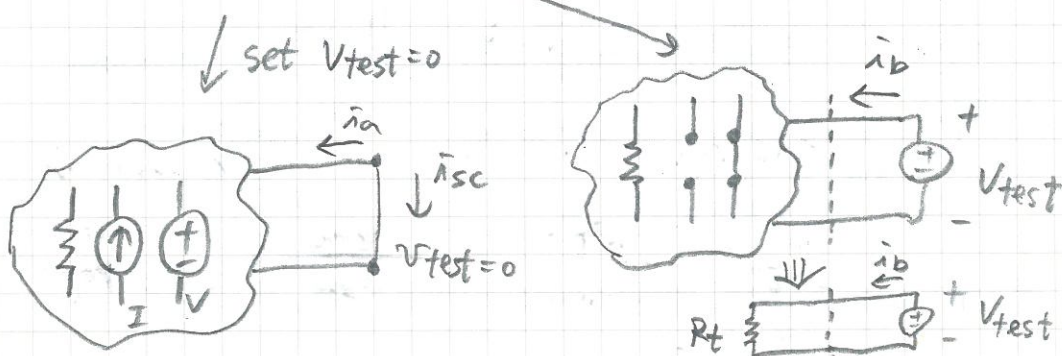 set Vtest=0
ia
isc
Vtest=0
I
V
ib
+
Vtest
-
ib
Rt
+
Vtest
-